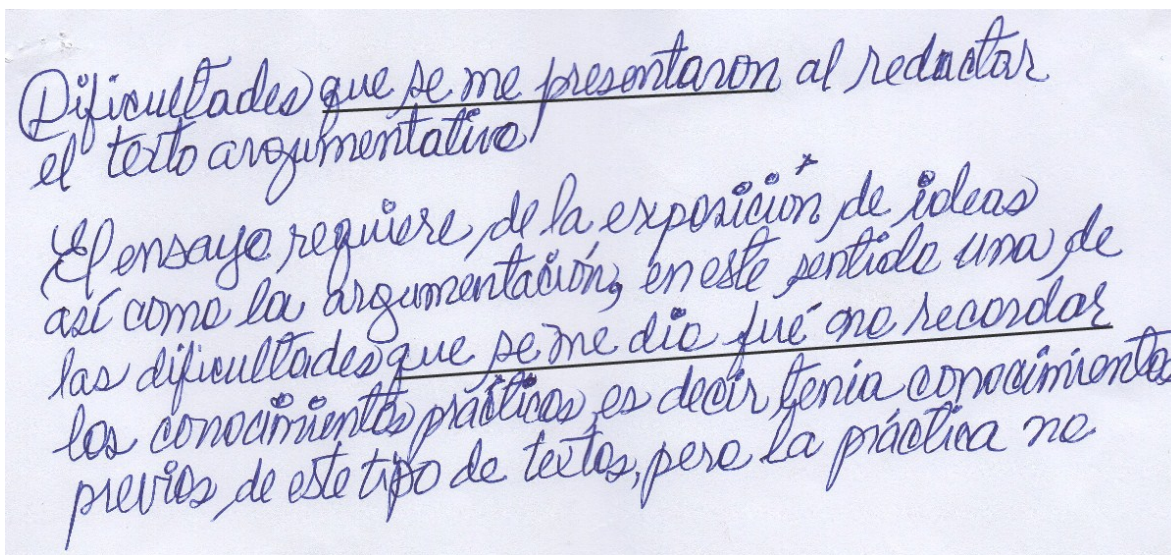 Dificultades que se me presentaron al redactar
el texto argumentativo.
El ensayo requiere de la exposición de ideas
así como la argumentación, en este sentido una de
las dificultades que se me dio fué no recordar
los conocimientos prácticos, es decir tenia conocimientos
previos de este tipo de textos, pero la práctica no